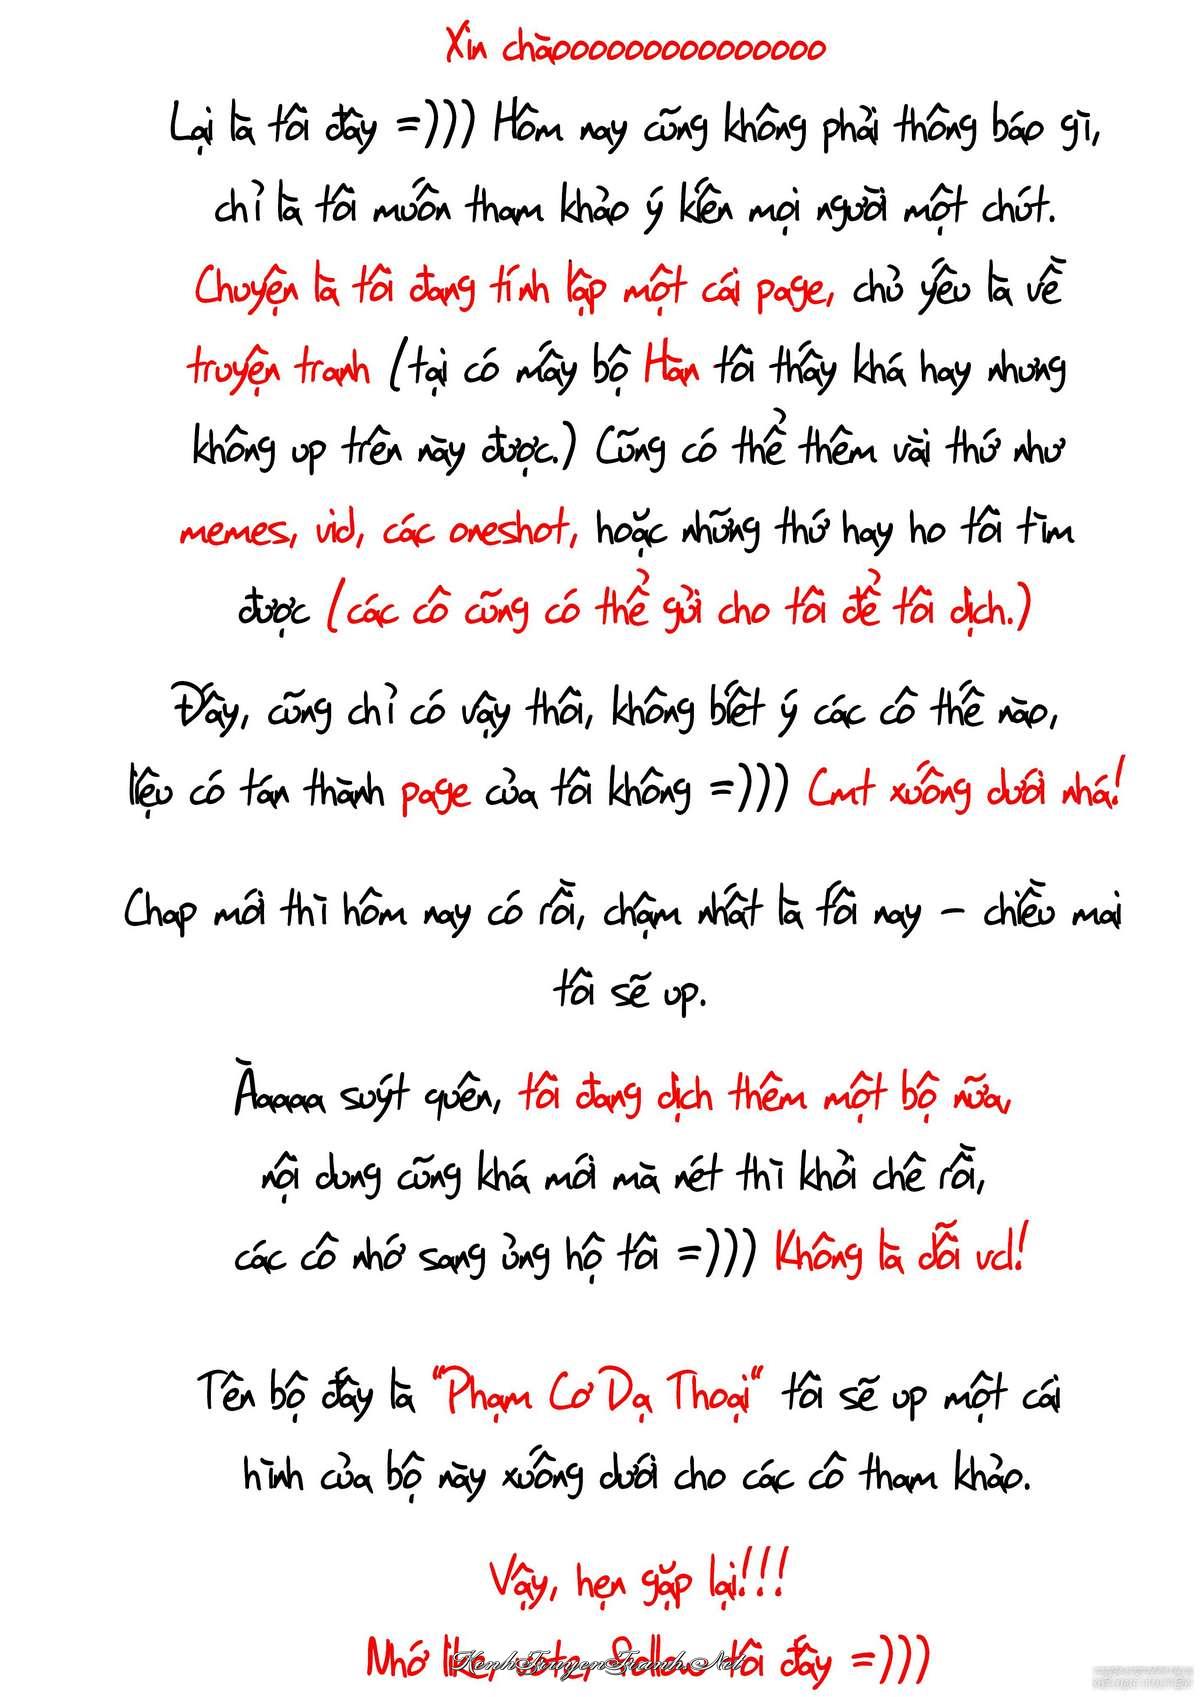 Xin chàooooooooooooooo
Lại là tôi đây =))) Hôm nay cũng không phải thông báo gì,
chỉ là tôi muốn tham khảo ý kiến mọi người một chút.
Chuyện là tôi đang tính lập một cái page, chủ yếu là về
truyện tranh (tại có mấy bộ Hàn tôi thấy khá hay nhưng
không up trên này được.) Cũng có thể thêm vài thứ như
memes, vid, các oneshot, hoặc những thứ hay ho tôi tìm
được (các cô cũng có thể gửi cho tôi để tôi dịch.)
Đấy, cũng chỉ có vậy thôi, không biết ý các cô thế nào,
liệu có tán thành page của tôi không =))) Cmt xuống dưới nhá!
Chap mới thì hôm nay có rồi, chậm nhất là tối nay - chiều mai
tôi sẽ up.
Àaaaa suýt quên, tôi đang dịch thêm một bộ nữa,
nội dung cũng khá mới mà nét thì khỏi chê rồi,
các cô nhớ sang ủng hộ tôi =))) Không là dỗi vcl!
Tên bộ đấy là "Phạm Cơ Dạ Thoại" tôi sẽ up một cái
hình của bộ này xuống dưới cho các cô tham khảo.
Vậy, hẹn gặp lại!!!
Nhớ like, vote, follow tôi đấy =)))
KenhTruyenTranh.Net